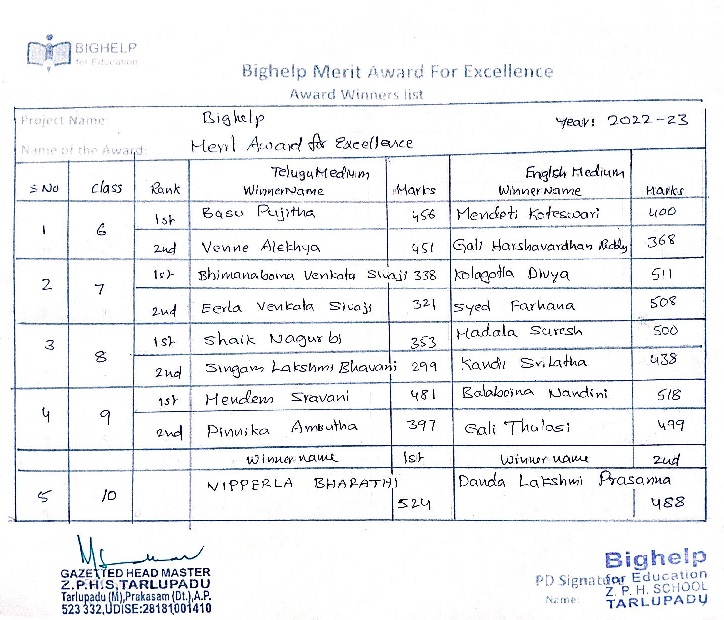 BIGHELP
for Education
Bighelp Merit Award For Excellence
Award Winners list
Project Name: Bighelp Year: 2022-23
Name of the Award: Merit Award for Excellence
S No Class Rank Telugu Medium Winner Name Marks English Medium Winner Name Marks
1 6 1st Basu Pujitha 456 Mendeti Koteswari 400
2nd Venne Alekhya 451 Gali Harshavardhan Reddy 368
2 7 1st Bhimanaboina Venkata Sivaji 338 Kolagotla Divya 511
2nd Eerla Venkata Sivaji 321 Syed Farhana 508
3 8 1st Shaik Nagurbi 353 Hadala Suresh 500
2nd Singam Lakshmi Bhavani 299 Kandii Srilatha 438
4 9 1st Mendem Sravani 481 Balaboina Nandini 518
2nd Pinnika Amrutha 397 Gali Thulasi 499
Winner name 1st Winner name 2nd
5 10 NIPPERLA BHARATHI 524 Danda Lakshmi Prasanna 488
GAZETTED HEAD MASTER
Z.P.H.S, TARLUPADU
Tarlupadu (M), Prakasam (Dt.), A.P.
523 332, UDISE:28181001410
Bighelp
PD Signature for Education
Name: Z. P. H. SCHOOL
TARLUPADU